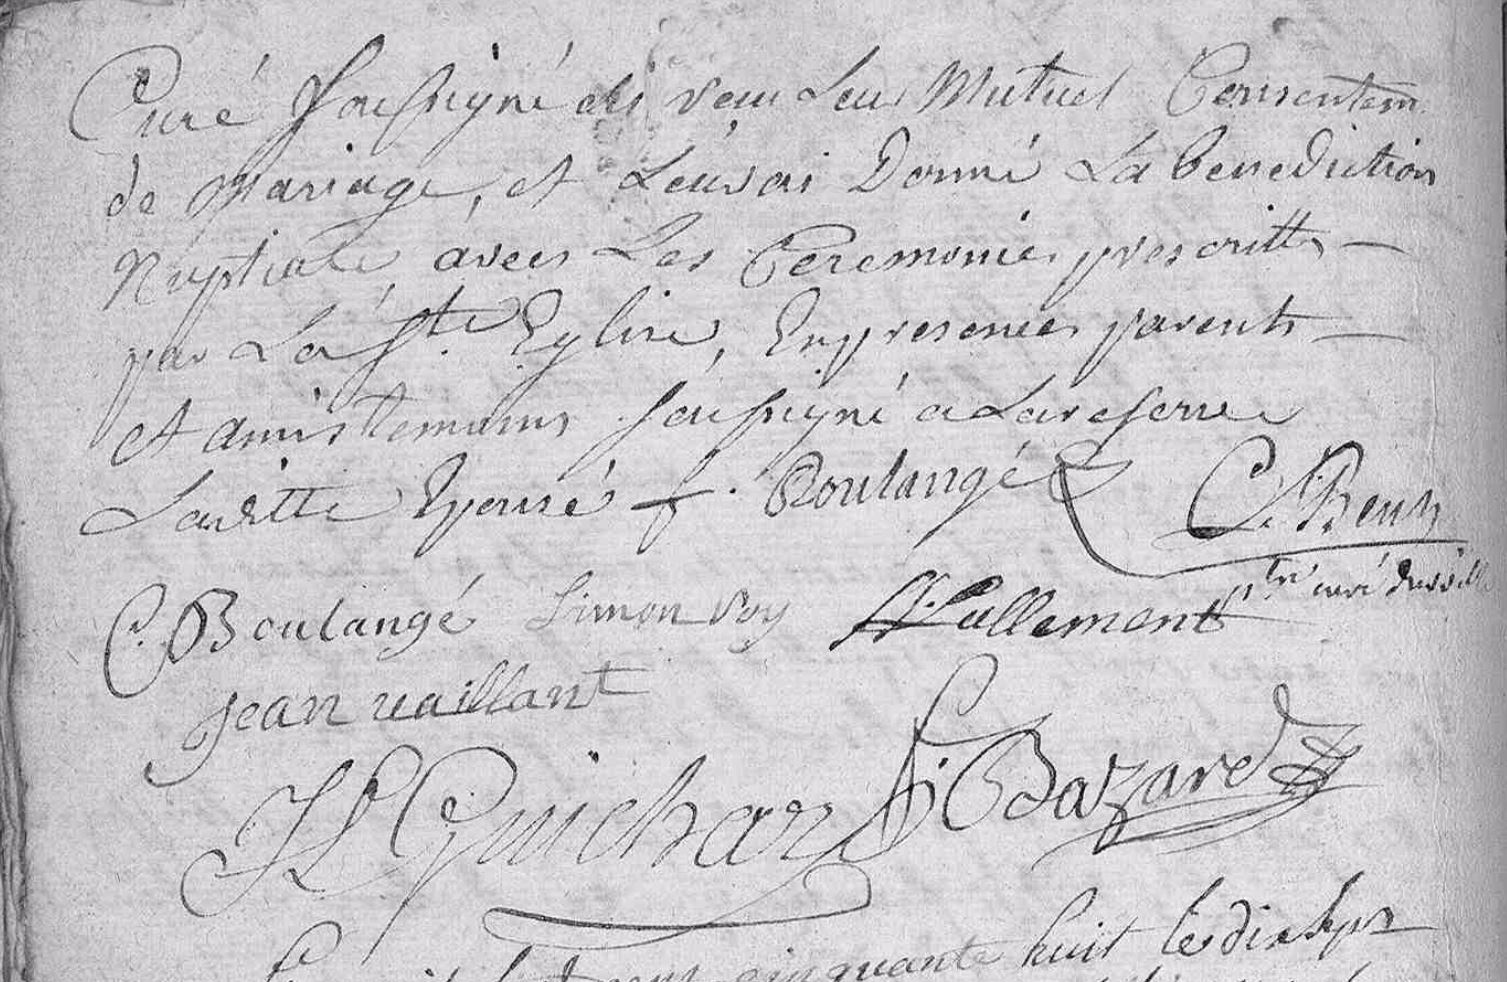 Curé Soussigné ai reçu Leur Mutuel Consentem
de Mariage, et Leurs ai Donné La benediction
Nuptiale avec Les Ceremonies prescrittes —
par La Ste. Eglise, En presences parents —
et amis temoins Soussigné a La reserve
Laditte Epousé f. Boulangé C. Beus
ptre curé
C. Boulangé Simon roy Lallement
jean vaillant
JL Guichar Bazard
cinquante huit le dix Sept